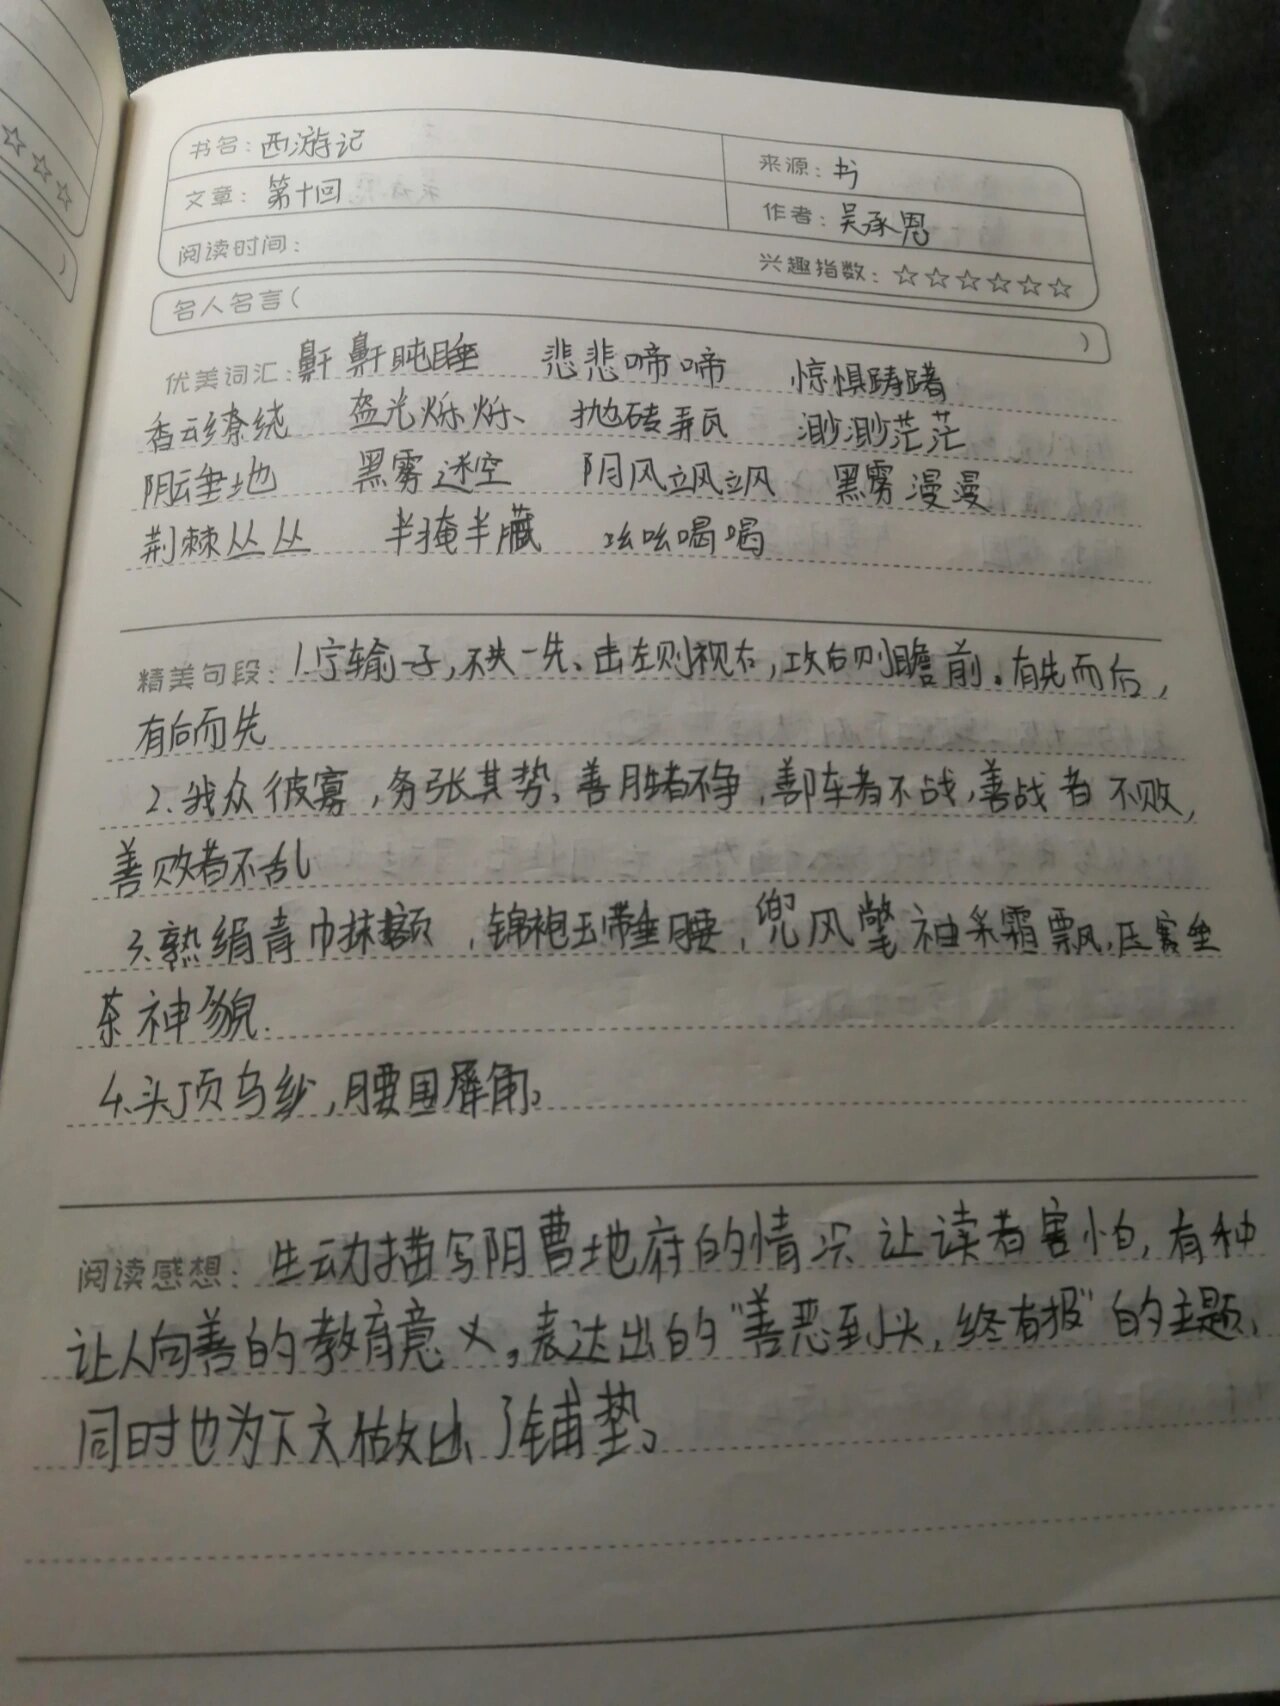 书名:西游记
来源:书
文章:第十回
作者:吴承恩
阅读时间:
兴趣指数:☆☆☆☆☆☆
名人名言( )
优美词汇:鼾鼾盹睡 悲悲啼啼 惊惧踌躇
香云缭绕 盔光烁烁 抛砖弄瓦 渺渺茫茫
阴云垂地 黑雾迷空 阴风飒飒 黑雾漫漫
荆棘丛丛 半掩半藏 吆吆喝喝
精美句段:1.宁输子,不失一先、击左则视右,攻后则瞻前。有先而后,
有后而先
2.我众彼寡,务张其势、善胜者不争,善阵者不战,善战者不败,
善败者不乱
3.熟绢青巾抹额,锦袍玉带垂腰,兜风氅袖采霜飘,压赛垒
荼神貌.
4.头顶乌纱,腰围犀角。
阅读感想:生动描写阴曹地府的情况 让读者害怕,有种
让人向善的教育意义。表达出的“善恶到头,终有报”的主题,
同时也为下文做出了铺垫。